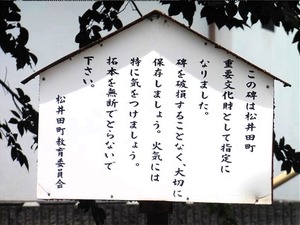 この碑は松井田町
重要文化財として指定に
なりました。
碑を破損することなく、大切に
保存しましょう。火気には
特に気をつけましょう。
拓本を無断でとらないで
下さい。
松井田町教育委員会